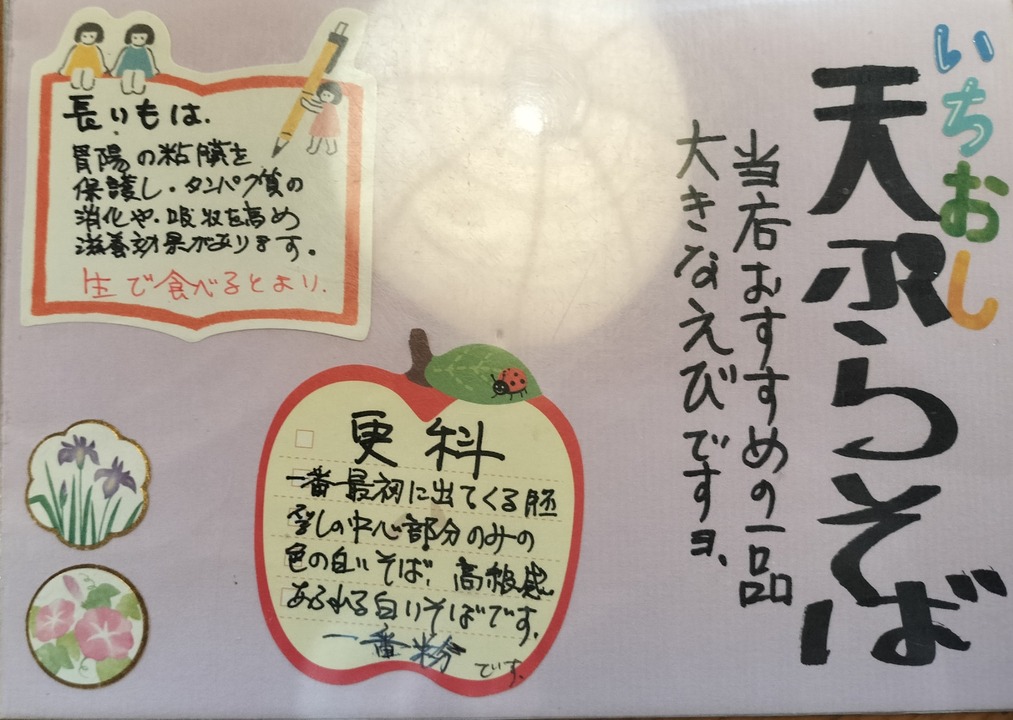 いちおし
天ぷらそば
当店おすすめの一品
大きなえびですヨ、
長いもは、
胃腸の粘膜を
保護し・タンパク質の
消化や、吸収を高め
滋養効果があります。
生で食べるとより、
更科
一番最初に出てくる胚
乳の中心部分のみの
色の白いそば、高級感
あふれる白いそばです。
一番粉です。